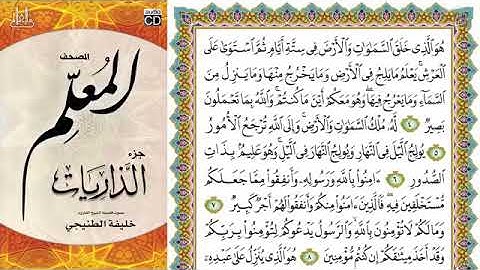 المصحف
المُعلِّم
جزء
الذاريات
خليفة الطنيجي
audio
CD
هُوَ الَّذِي خَلَقَ السَّمَٰوَٰتِ وَالْأَرْضَ فِي سِتَّةِ أَيَّامٍ ثُمَّ اسْتَوَىٰ عَلَى
الْعَرْشِ ۚ يَعْلَمُ مَا يَلِجُ فِي الْأَرْضِ وَمَا يَخْرُجُ مِنْهَا وَمَا يَنزِلُ مِنَ
السَّمَاءِ وَمَا يَعْرُجُ فِيهَا ۖ وَهُوَ مَعَكُمْ أَيْنَ مَا كُنتُمْ ۚ وَاللَّهُ بِمَا تَعْمَلُونَ
بَصِيرٌ ٤ لَّهُ مُلْكُ السَّمَٰوَٰتِ وَالْأَرْضِ ۚ وَإِلَى اللَّهِ تُرْجَعُ الْأُمُورُ
٥ يُولِجُ اللَّيْلَ فِي النَّهَارِ وَيُولِجُ النَّهَارَ فِي اللَّيْلِ ۚ وَهُوَ عَلِيمٌ بِذَاتِ
الصُّدُورِ ٦ ءَامِنُوا بِاللَّهِ وَرَسُولِهِ وَأَنفِقُوا مِمَّا جَعَلَكُم
مُّسْتَخْلَفِينَ فِيهِ ۖ فَالَّذِينَ ءَامَنُوا مِنكُمْ وَأَنفَقُوا لَهُمْ أَجْرٌ كَبِيرٌ ٧
وَمَا لَكُمْ لَا تُؤْمِنُونَ بِاللَّهِ ۙ وَالرَّسُولُ يَدْعُوكُمْ لِتُؤْمِنُوا بِرَبِّكُمْ
وَقَدْ أَخَذَ مِيثَٰقَكُمْ إِن كُنتُم مُّؤْمِنِينَ ٨ هُوَ الَّذِي يُنَزِّلُ عَلَىٰ عَبْدِهِ